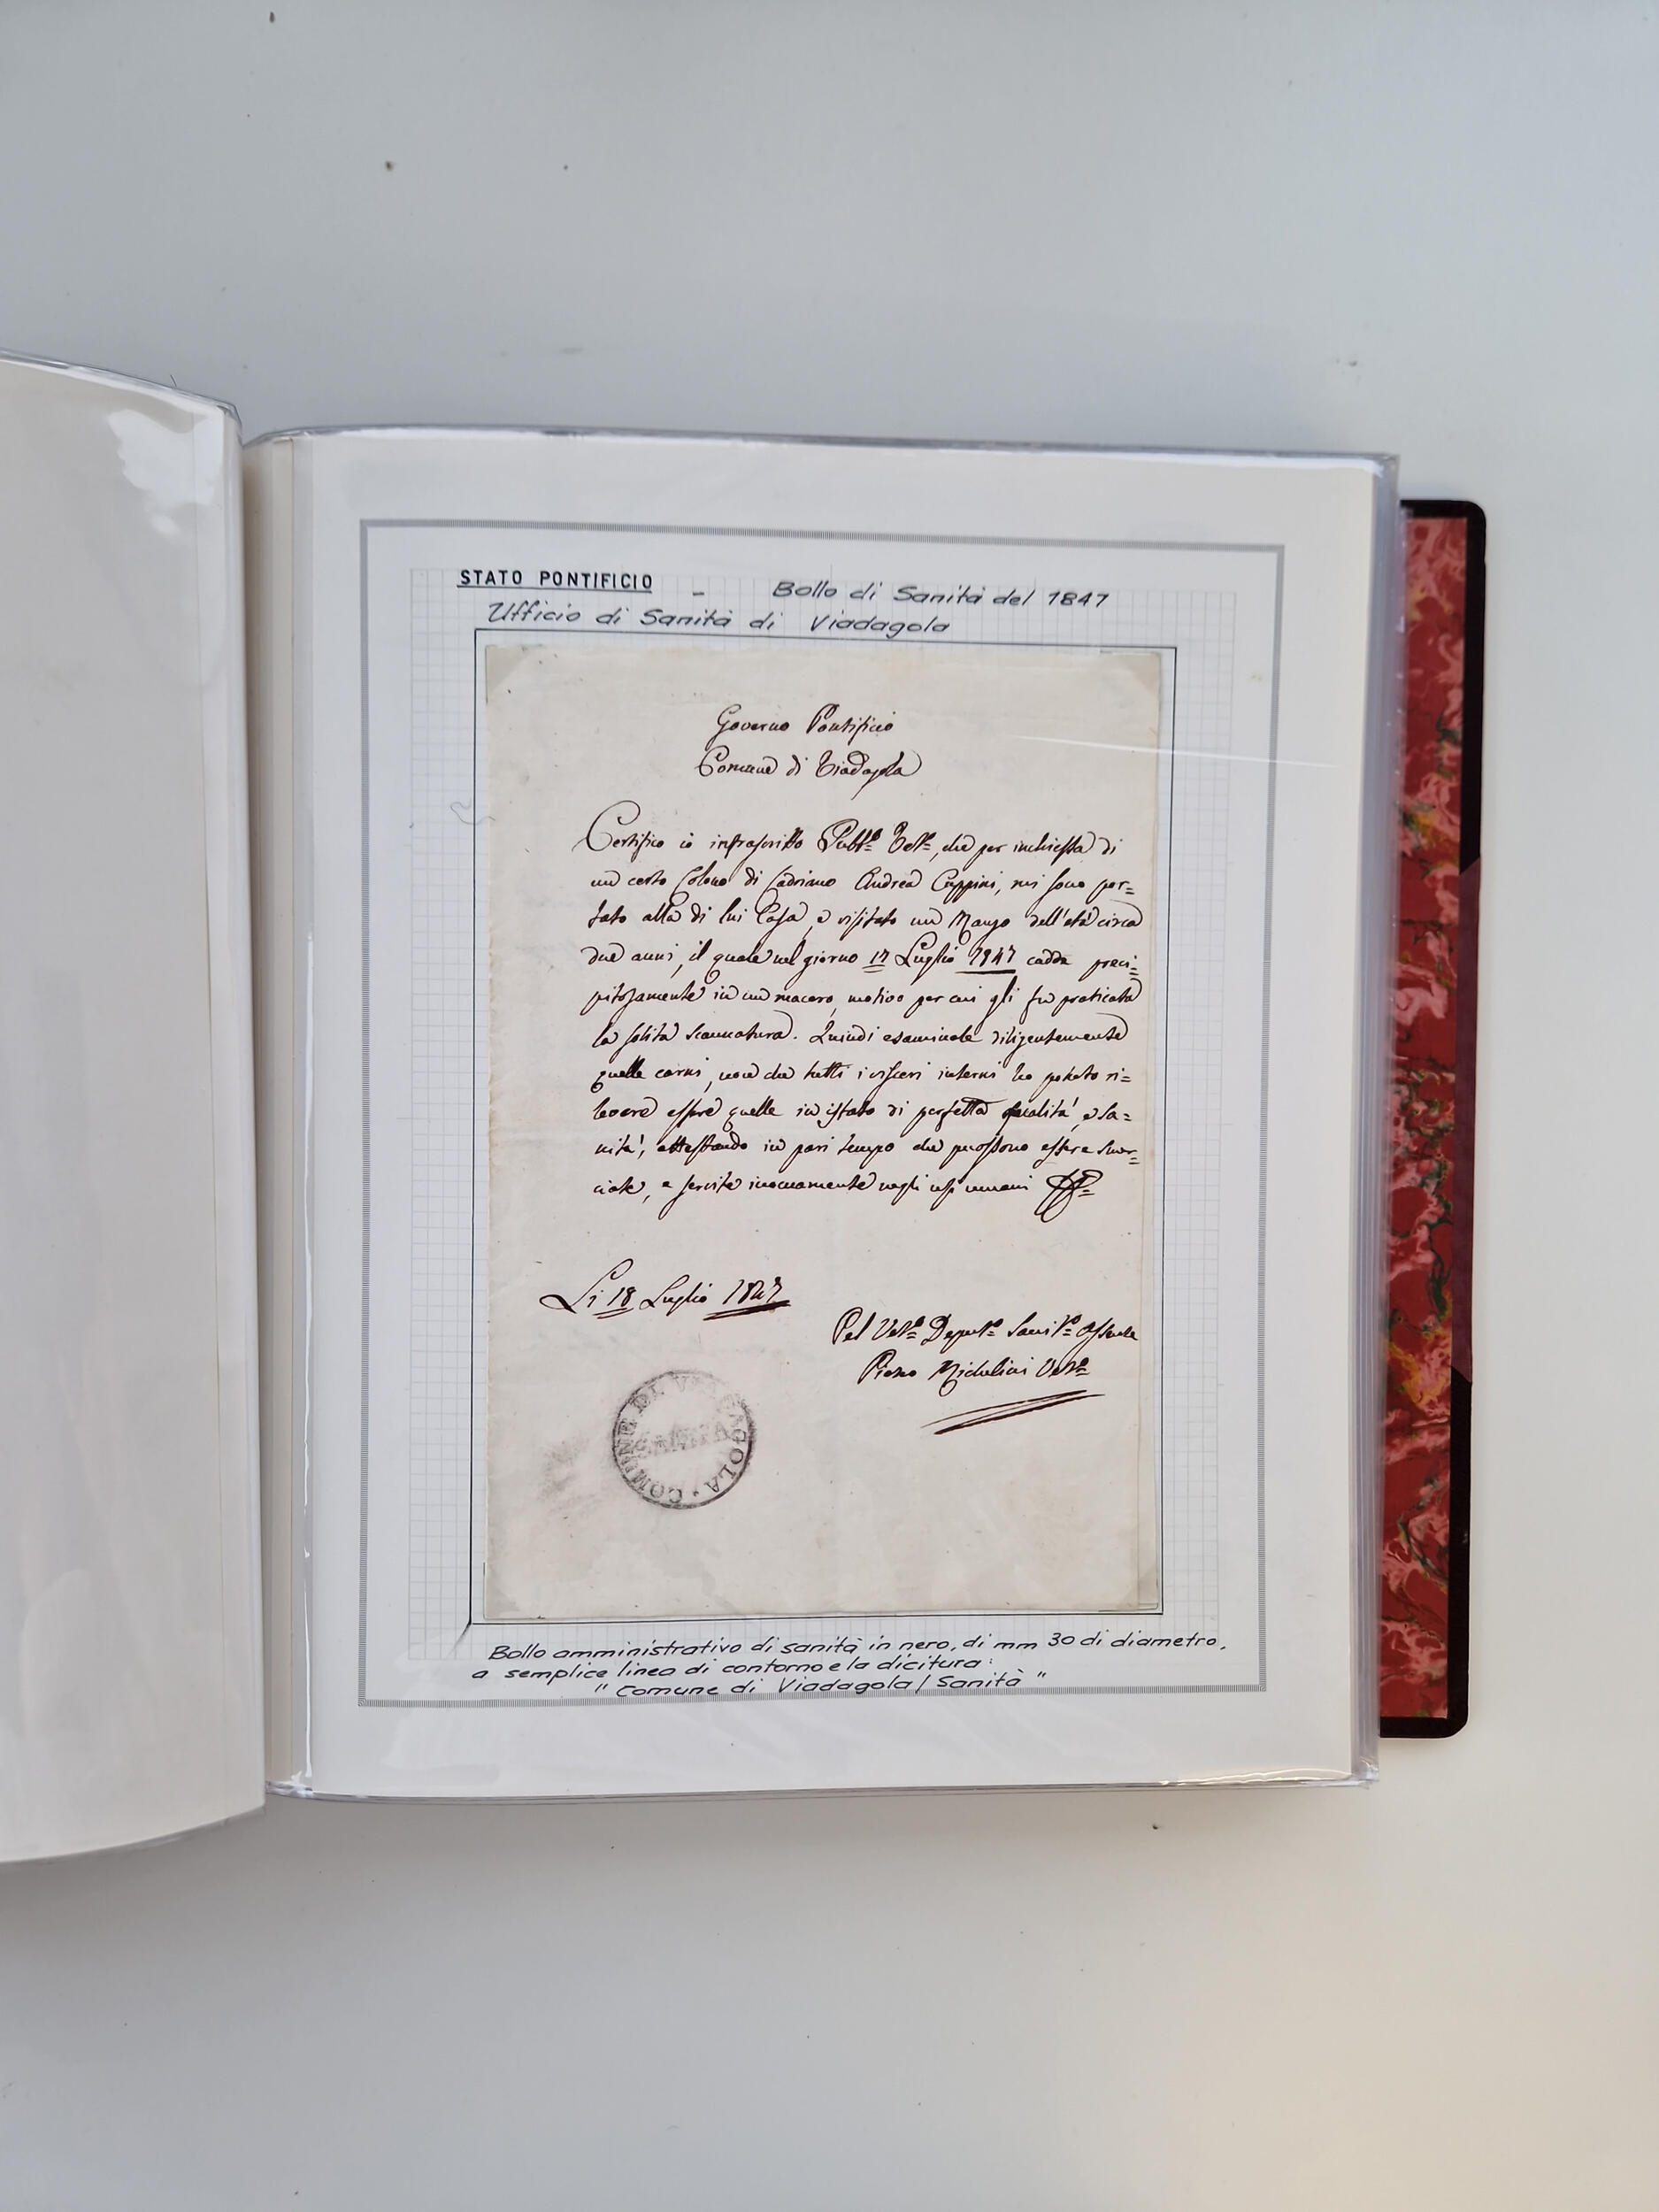 STATO PONTIFICIO - Bollo di Sanità del 1847
Ufficio di Sanità di Viadagola
Governo Pontificio
Comune di Viadagola
Certifico io infrascritto Pubb.o Vet.o, che per inchiesta di
un certo Colono di Cadriano Andrea Cuppini, mi sono por=
tato alla di lui Casa, e visitato un Manzo dell'età circa
due anni, il quale nel giorno 17 Luglio 1847 cadde preci=
pitosamente in un macero, motivo per cui gli fu praticata
la solita scannatura. Quindi esaminate diligentemente
quelle carni, non che tutti i visceri interni ho potuto ri=
levare essere quelle in istato di perfetta qualità, e sa=
nità, attestando in pari tempo che possono essere smer=
ciate, e servite innocuamente negli usi umani
Li 18 Luglio 1847
Pel Vet.o Deput.o Sanit.o Assente
Piero Michelini Vet.o
COMUNE DI VIADAGOLA
SANITÀ
Bollo amministrativo di sanità in nero, di mm 30 di diametro,
a semplice linea di contorno e la dicitura:
"Comune di Viadagola / Sanità"